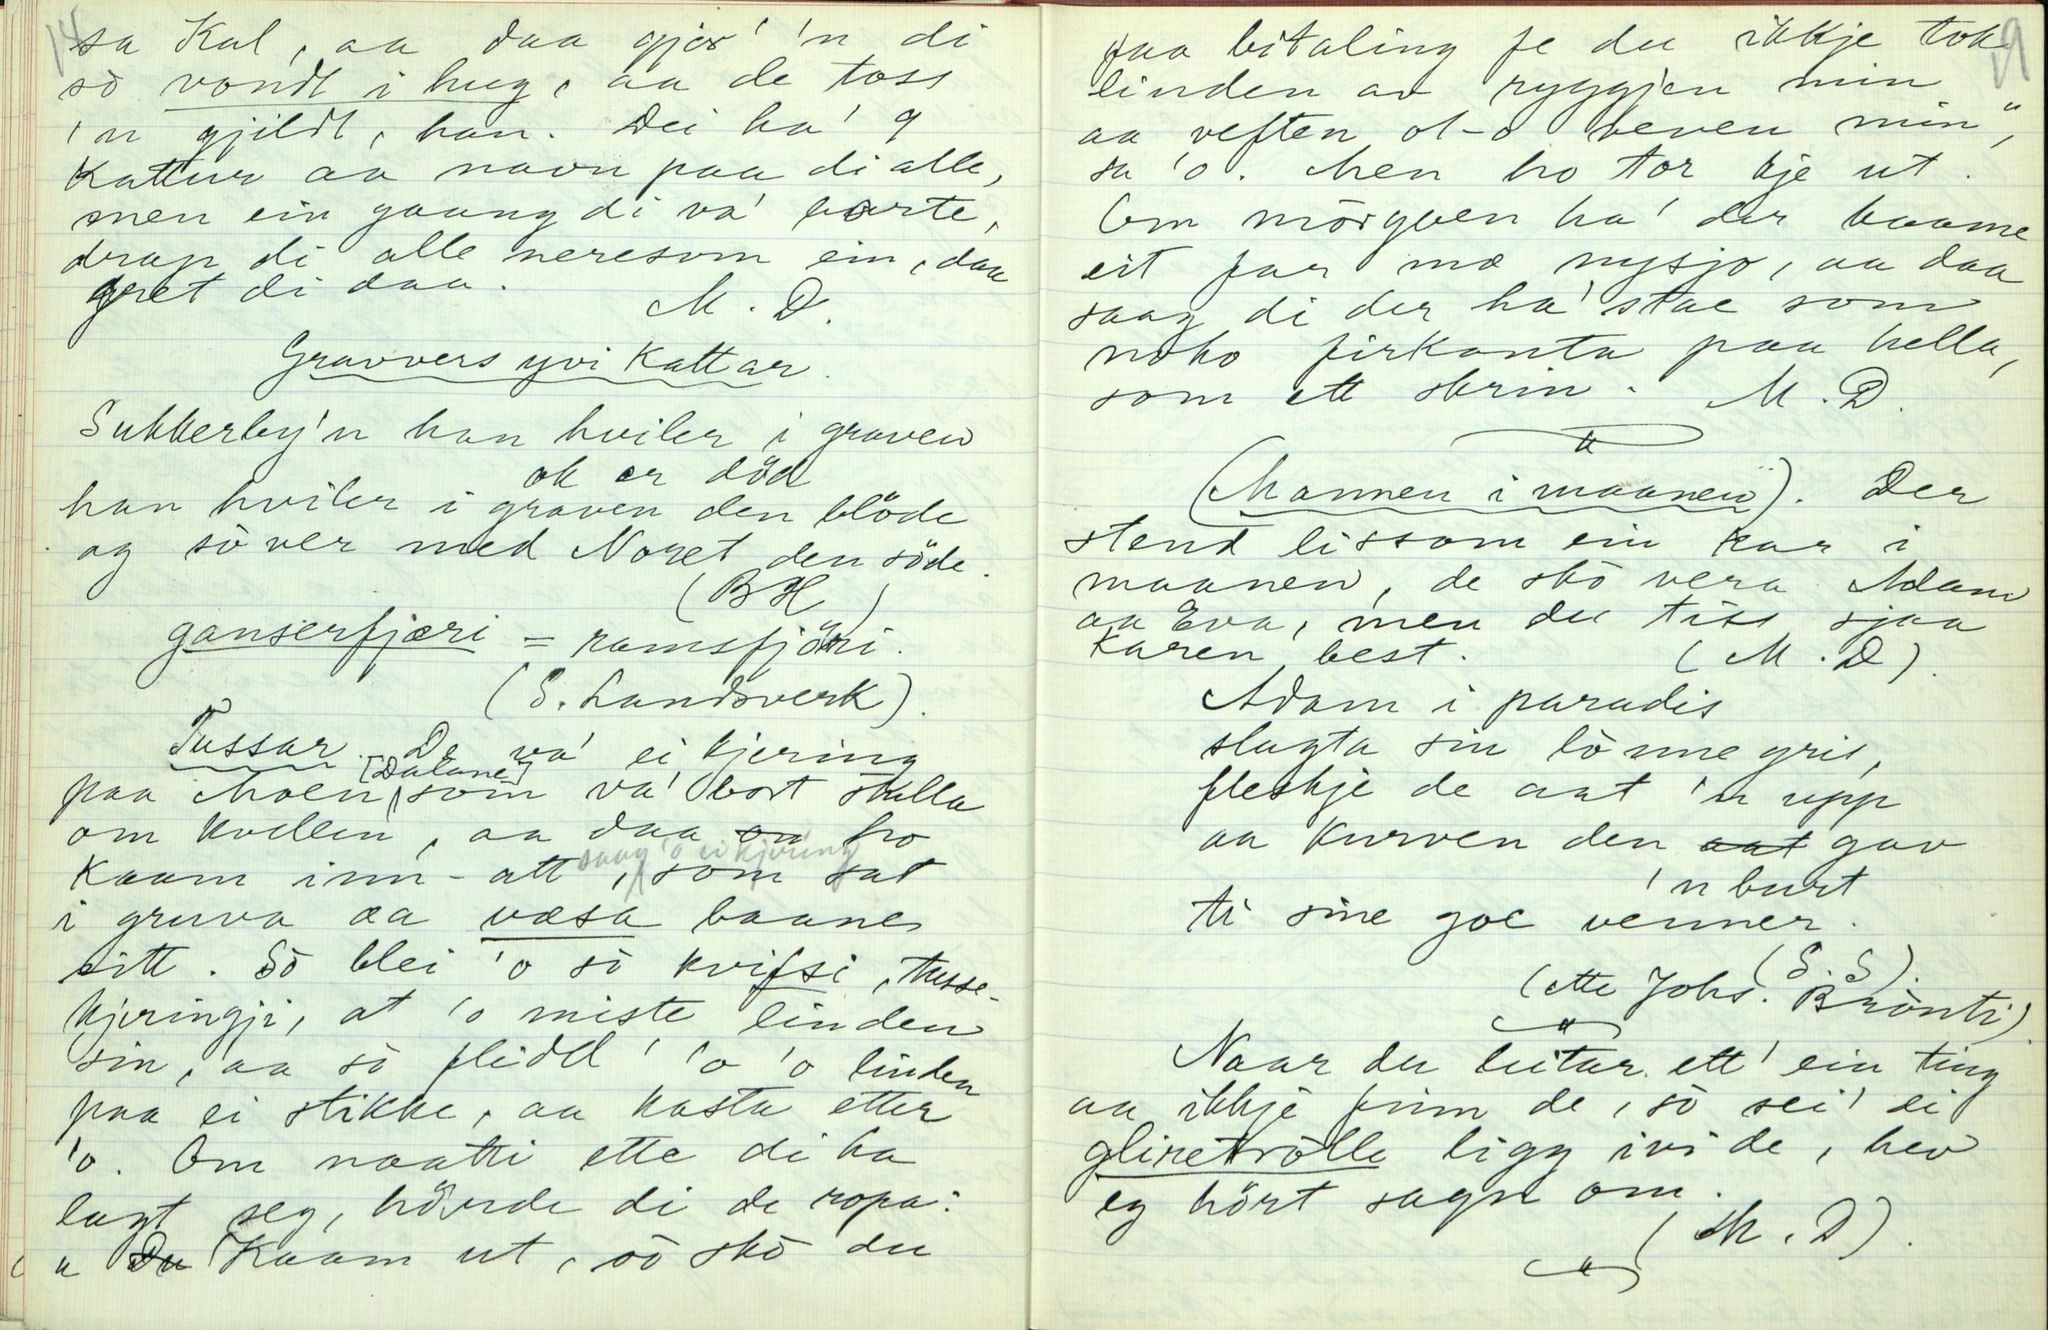 14
sa Kal, aa daa gjer' 'n di
sò vondt i hug, aa de toss
'n gjildt, han. Dei ha' 9
kattur aa navn paa di alle,
men ein gaang di va' borte,
drap di alle neresom ein, daa
gret di daa.
M. D.
Gravvers yvi Kattar.
Sukkerby'n han hviler i graven
ok er död
han hviler i graven den blöde
og sòver med Noret den söde.
(B H)
ganserfjæri = ramsfjöri.
(S. Landsverk).
Tussar. De va' ei kjering
paa Moen [Dalane] som va' bort stulla
om kvellen, aa daa ho
kaam inn-att saag 'o ei kjering, som sat
i gruva aa væsa baane
sitt. Sò blei 'o sò kvifsi, tusse-
kjeringji, at 'o miste linden
sin, aa sò flidd' 'o 'o linden
paa ei stikke, aa kasta etter
'o. Om naatti ette di ha
lagt seg, hörde di de ropa:
"Du Kaam ut, sò skò du
9
faa bitaling fe du ikkje tok
linden av ryggjen min
aa veften ot-o veven min",
sa 'o. Men ho tor kje ut.
Om mòrgoen ha' der kaame
eit far mæ nysjo, aa daa
saag di der ha' stae som
noko firkanta paa hella,
som ett skrin. M. D.
(Mannen i maanen). Der
stend lissom ein kar i
maanen, de skò vera Adam
aa Eva, men du tiss sjaa
Karen best. (M. D).
Adam i paradis
slagta sin lònne gris,
fleskje de aat 'n upp
aa kurven den aat gav
'n burt
ti sine goe venner.
(S. S).
(ette Johs. Brònti)
Naar du leitar ett' ein ting
aa ikkje finn de, sò sei' ei
gliretròlle ligg ivi de, hev
eg hört sagn om.
(M. D).